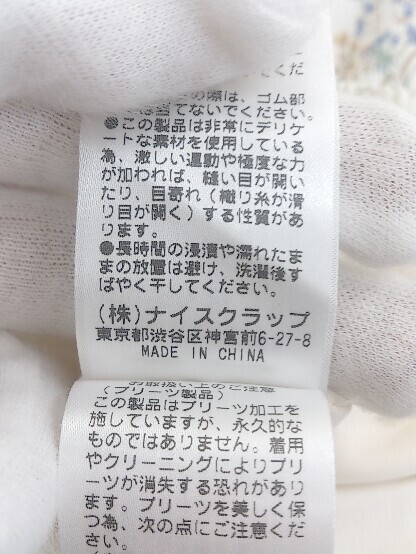 てくだ
の際は、ゴム部
は当てないでください。
●この製品は非常にデリケ
ートな素材を使用している
為、激しい運動や極度な力
が加われば、縫い目が開い
たり、目寄れ（織り糸が滑
り目が開く）する性質があ
ります。
●長時間の浸漬や濡れたま
まの放置は避け、洗濯後す
ばやく干してください。
(株)ナイスクラップ
東京都渋谷区神宮前6-27-8
MADE IN CHINA
お取扱い上のご注意
(プリーツ製品)
この製品はプリーツ加工を
施していますが、永久的な
ものではありません。着用
やクリーニングによりプリ
ーツが消失する恐れがあり
ます。プリーツを美しく保
つ為、次の点にご注意くだ
さい。